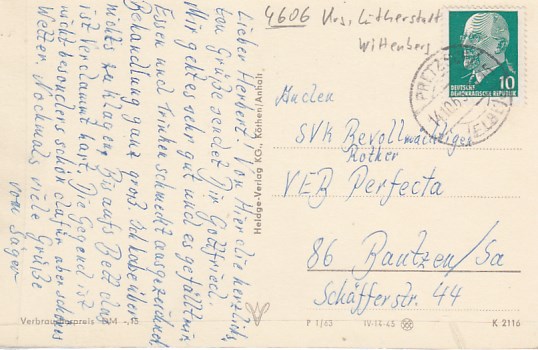 4606 Krs. Lutherstadt
Wittenberg
Lieber Herbert! Von Hier die herzlich
sten Grüße sendet Dir Gottfried.
Mir geht es sehr gut und es gefällt mir
Essen und Trinken schmeckt ausgezeichnet
Behandlung ganz groß. Ich habe über
nichts zu klagen. Bis aufs Bett das
ist verdammt hart. Die Gegend ist
nicht besonders schön dafür aber schönes
Wetter. Nochmals viele Grüße
vom Sager
Verbraucherpreis DM -,15
Heldge-Verlag KG., Köthen/Anhalt
DEUTSCHE
DEMOKRATISCHE REPUBLIK
10
PRETZSCH
(ELBE)
An den
SVK Bevollmächtigen
Rother
VEB Perfecta
86 Bautzen/Sa
Schäferstr. 44
P 1/63 IV-14-45 K 2116